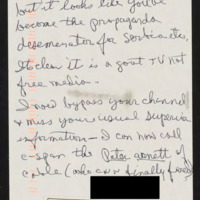 but it looks like you've
become the propaganda
desemenator for Serbia etc.
Its clear it is a govt TV not
free media.
I now bypass your channel
& miss your usual superior
information - I can now call
c-span the Peter Arnett of
cable (
finally fired)